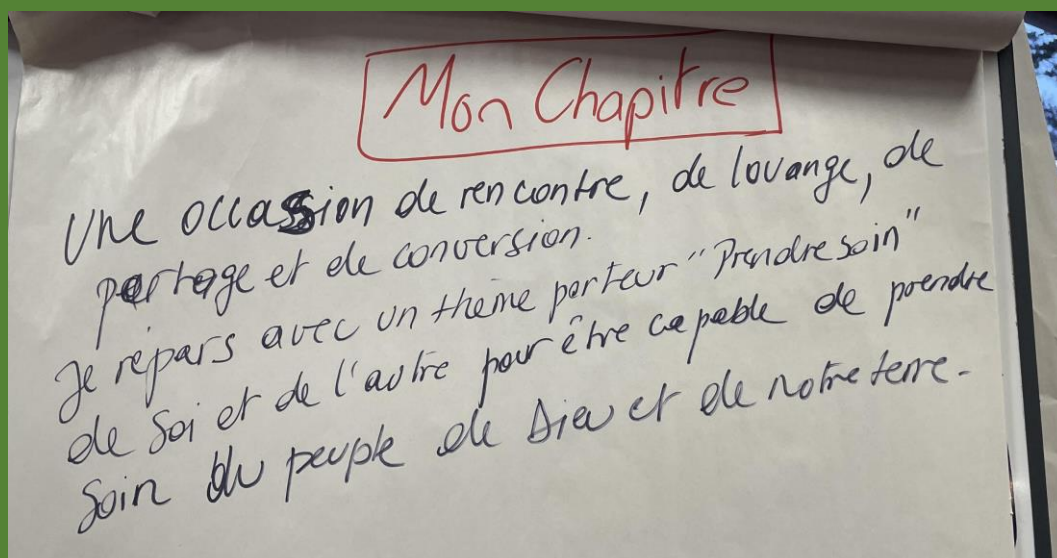 Mon Chapitre
Une occassion de rencontre, de louange, de
partage et de conversion.
Je repars avec un thème porteur "Prendre soin"
de Soi et de l'autre pour être capable de prendre
Soin du peuple de Dieu et de notre terre.